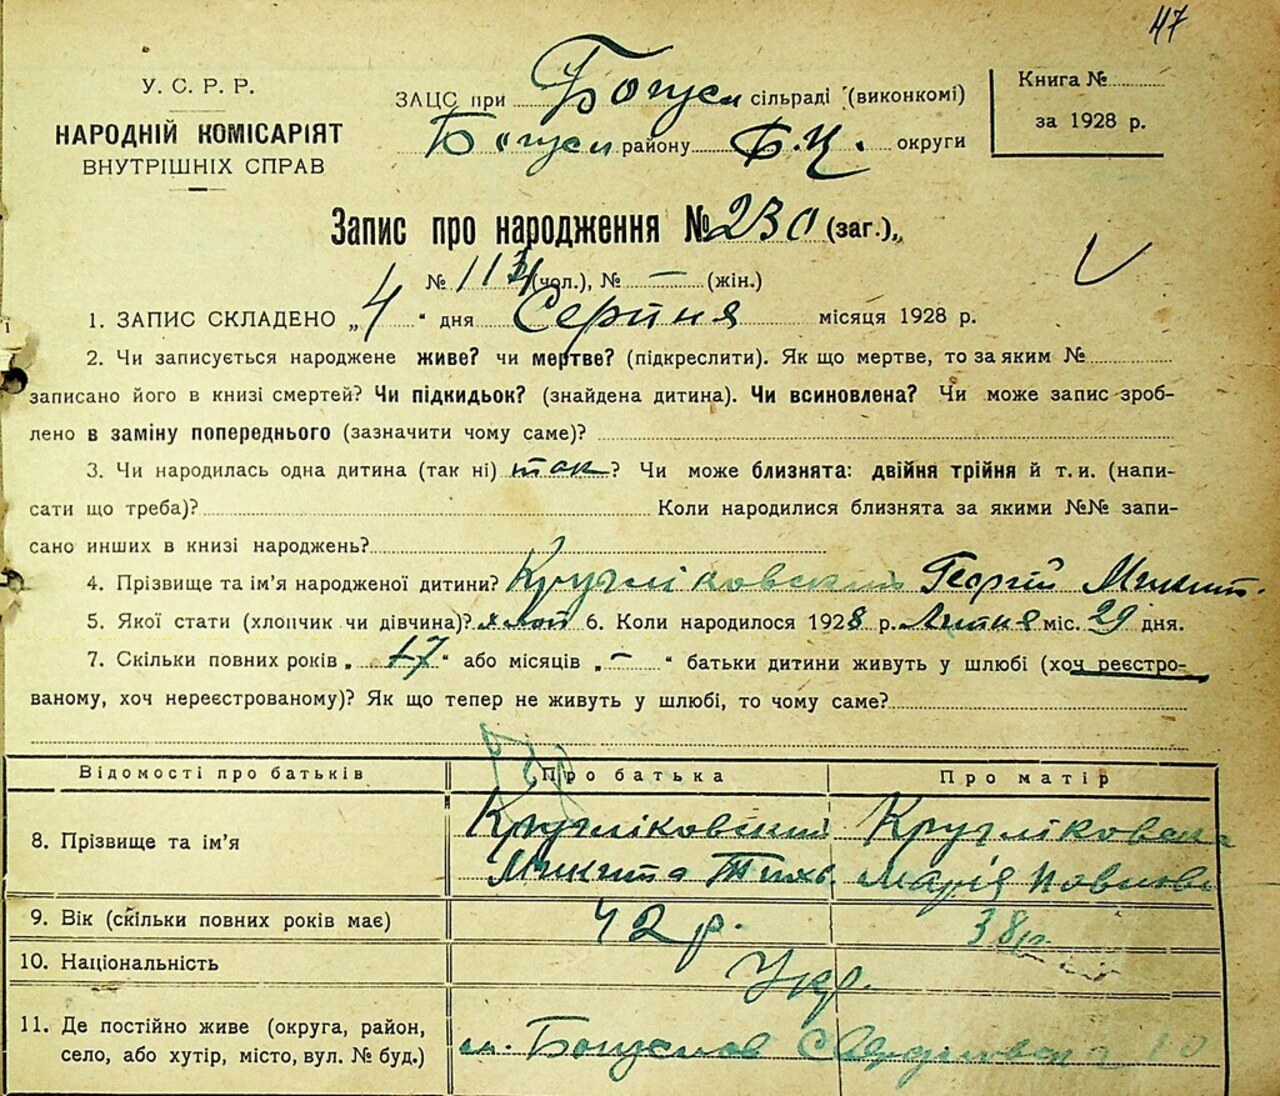 47
У. С. Р. Р.
НАРОДНІЙ КОМІСАРІЯТ
ВНУТРІШНІХ СПРАВ
ЗАЦС при Богусл сільраді (виконкомі)
Богусл району Б.Ц. округи
Книга №
за 1928 р.
Запис про народження № 230 (заг.),
№ 114 (чол.), № — (жін.)
1. ЗАПИС СКЛАДЕНО „ 4 “ дня Серпня місяця 1928 р.
2. Чи записується народжене живе? чи мертве? (підкреслити). Як що мертве, то за яким №
записано його в книзі смертей? Чи підкидьок? (знайдена дитина). Чи всиновлена? Чи може запис зроб-
лено в заміну попереднього (зазначити чому саме)?
3. Чи народилась одна дитина (так ні) так? Чи може близнята: двійня трійня й т. и. (напи-
сати що треба)? Коли народилися близнята за якими №№ запи-
сано инших в книзі народжень?
4. Прізвище та ім’я народженої дитини? Кругліковський Георгій Микит.
5. Якої стати (хлопчик чи дівчина)? 6. Коли народилося 1928 р. Липня міс. 29 дня.
7. Скільки повних років „ 17 “ або місяців „ — “ батьки дитини живуть у шлюбі (хоч реєстро-
ваному, хоч нереєстрованому)? Як що тепер не живуть у шлюбі, то чому саме?
Відомості про батьків Про батька Про матір
8. Прізвище та ім’я Кругліковський Кругліковська
Микита Тихв. Марія
9. Вік (скільки повних років має) 42 р. 38 р.
10. Національність Укр.
11. Де постійно живе (округа, район,
село, або хутір, місто, вул. № буд.) м. Богуслав Свердловська 10